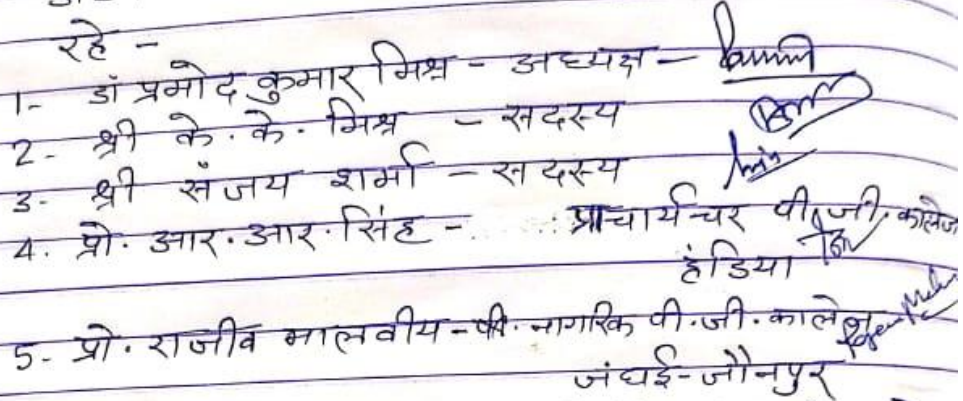 रहे -
1- डॉ प्रमोद कुमार मिश्र - अध्यक्ष -
2- श्री के. के. मिश्र - सदस्य
3- श्री संजय शर्मा - सदस्य
4. प्रो. आर. आर. सिंह - प्राचार्य पी.जी. कालेज
हंडिया
5- प्रो. राजीव मालवीय - नागरिक पी.जी. कालेज
जंघई-जौनपुर